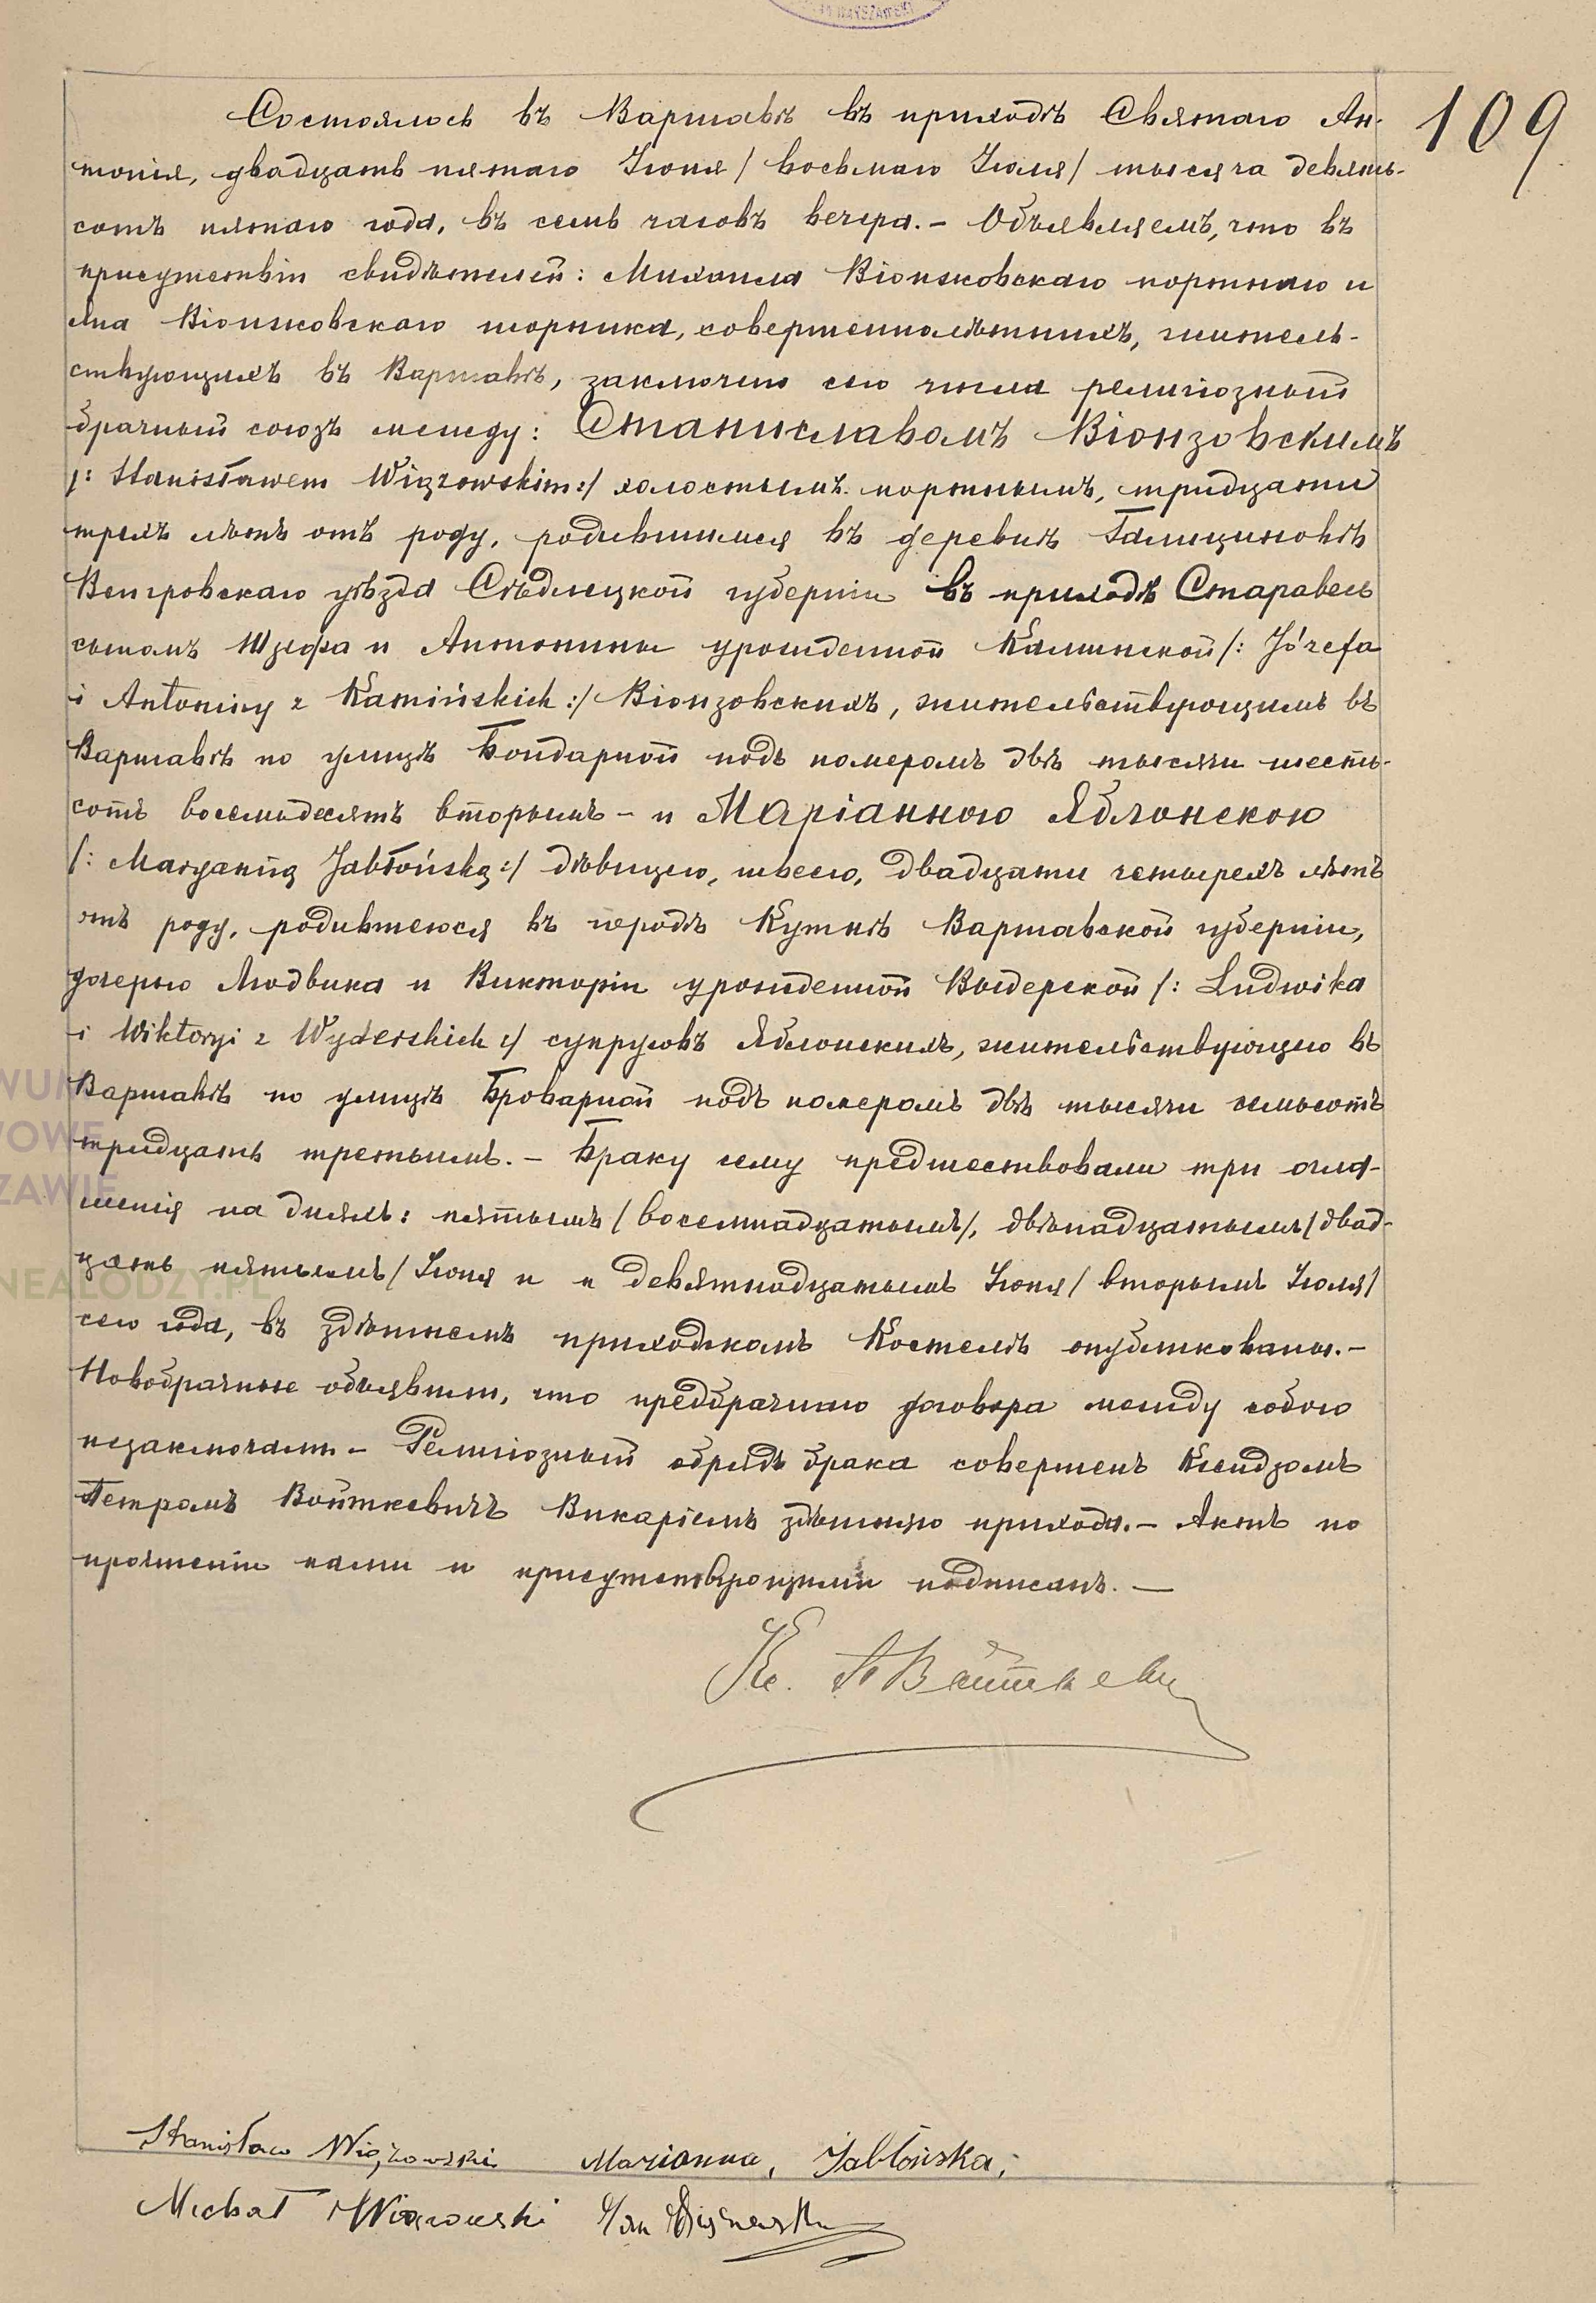 WARSZAWSKI
109
Состоялось въ Варшавѣ въ приходѣ Святаго Ан-
тонія, двадцать пятаго Іюня / восьмаго Іюля / тысяча девять-
сотъ пятаго года, въ семь часовъ вечера. – Объявляемъ, что въ
присутствіи свидѣтелей: Михаила Віонзковскаго портнаго и
Яна Віонзковскаго шорника, совершеннолѣтнихъ, житель-
ствующихъ въ Варшавѣ, заключенъ сего числа религіозный
брачный союзъ между: Станиславомъ Віонзовскимъ
/: Stanisławem Wiązowskim :/ холостымъ портнымъ, тридцати
трехъ лѣтъ отъ роду, родившимся въ деревнѣ Галициновѣ
Венгровскаго уѣзда Сѣдлецкой губерніи въ приходѣ Старавесь
сыномъ Юзефа и Антонины урожденной Каминской /: Józefa
i Antoniny z Kamińskich :/ Віонзовскихъ, жительствующимъ въ
Варшавѣ по улицѣ Бондарной подъ номеромъ двѣ тысячи шесть-
сотъ восемьдесятъ вторымъ – и Маріанною Яблонскою
/: Maryanną Jabłońską :/ дѣвицею, швеею, двадцати четырехъ лѣтъ
отъ роду, родившеюся въ городѣ Кутнѣ Варшавской губерніи,
дочерью Людвика и Викторіи урожденной Выдерской /: Ludwika
i Wiktoryi z Wyderskich :/ супруговъ Яблонскихъ, жительствующею въ
Варшавѣ по улицѣ Броварной подъ номеромъ двѣ тысячи семьсотъ
тридцать третьимъ. – Браку сему предшествовали три огла-
шенія на дняхъ: пятымъ / восемнадцатымъ /, двѣнадцатымъ / двад-
цать пятымъ / Іюня и и девятнадцатымъ Іюня / вторымъ Іюля /
сего года, въ здѣшнемъ приходскомъ Костелѣ опубликованы. –
Новобрачные объявили, что предбрачнаго договора между собою
незаключали. – Религіозный обрядъ брака совершенъ Ксендзомъ
Петромъ Войткевичъ Викаріемъ здѣшняго прихода. – Актъ по
прочтеніи нами и присутствующими подписанъ. –
Кс. П Войткевич
Stanisław Wiązowski Marianna, Jabłońska,
Michał Wiązowski Jan